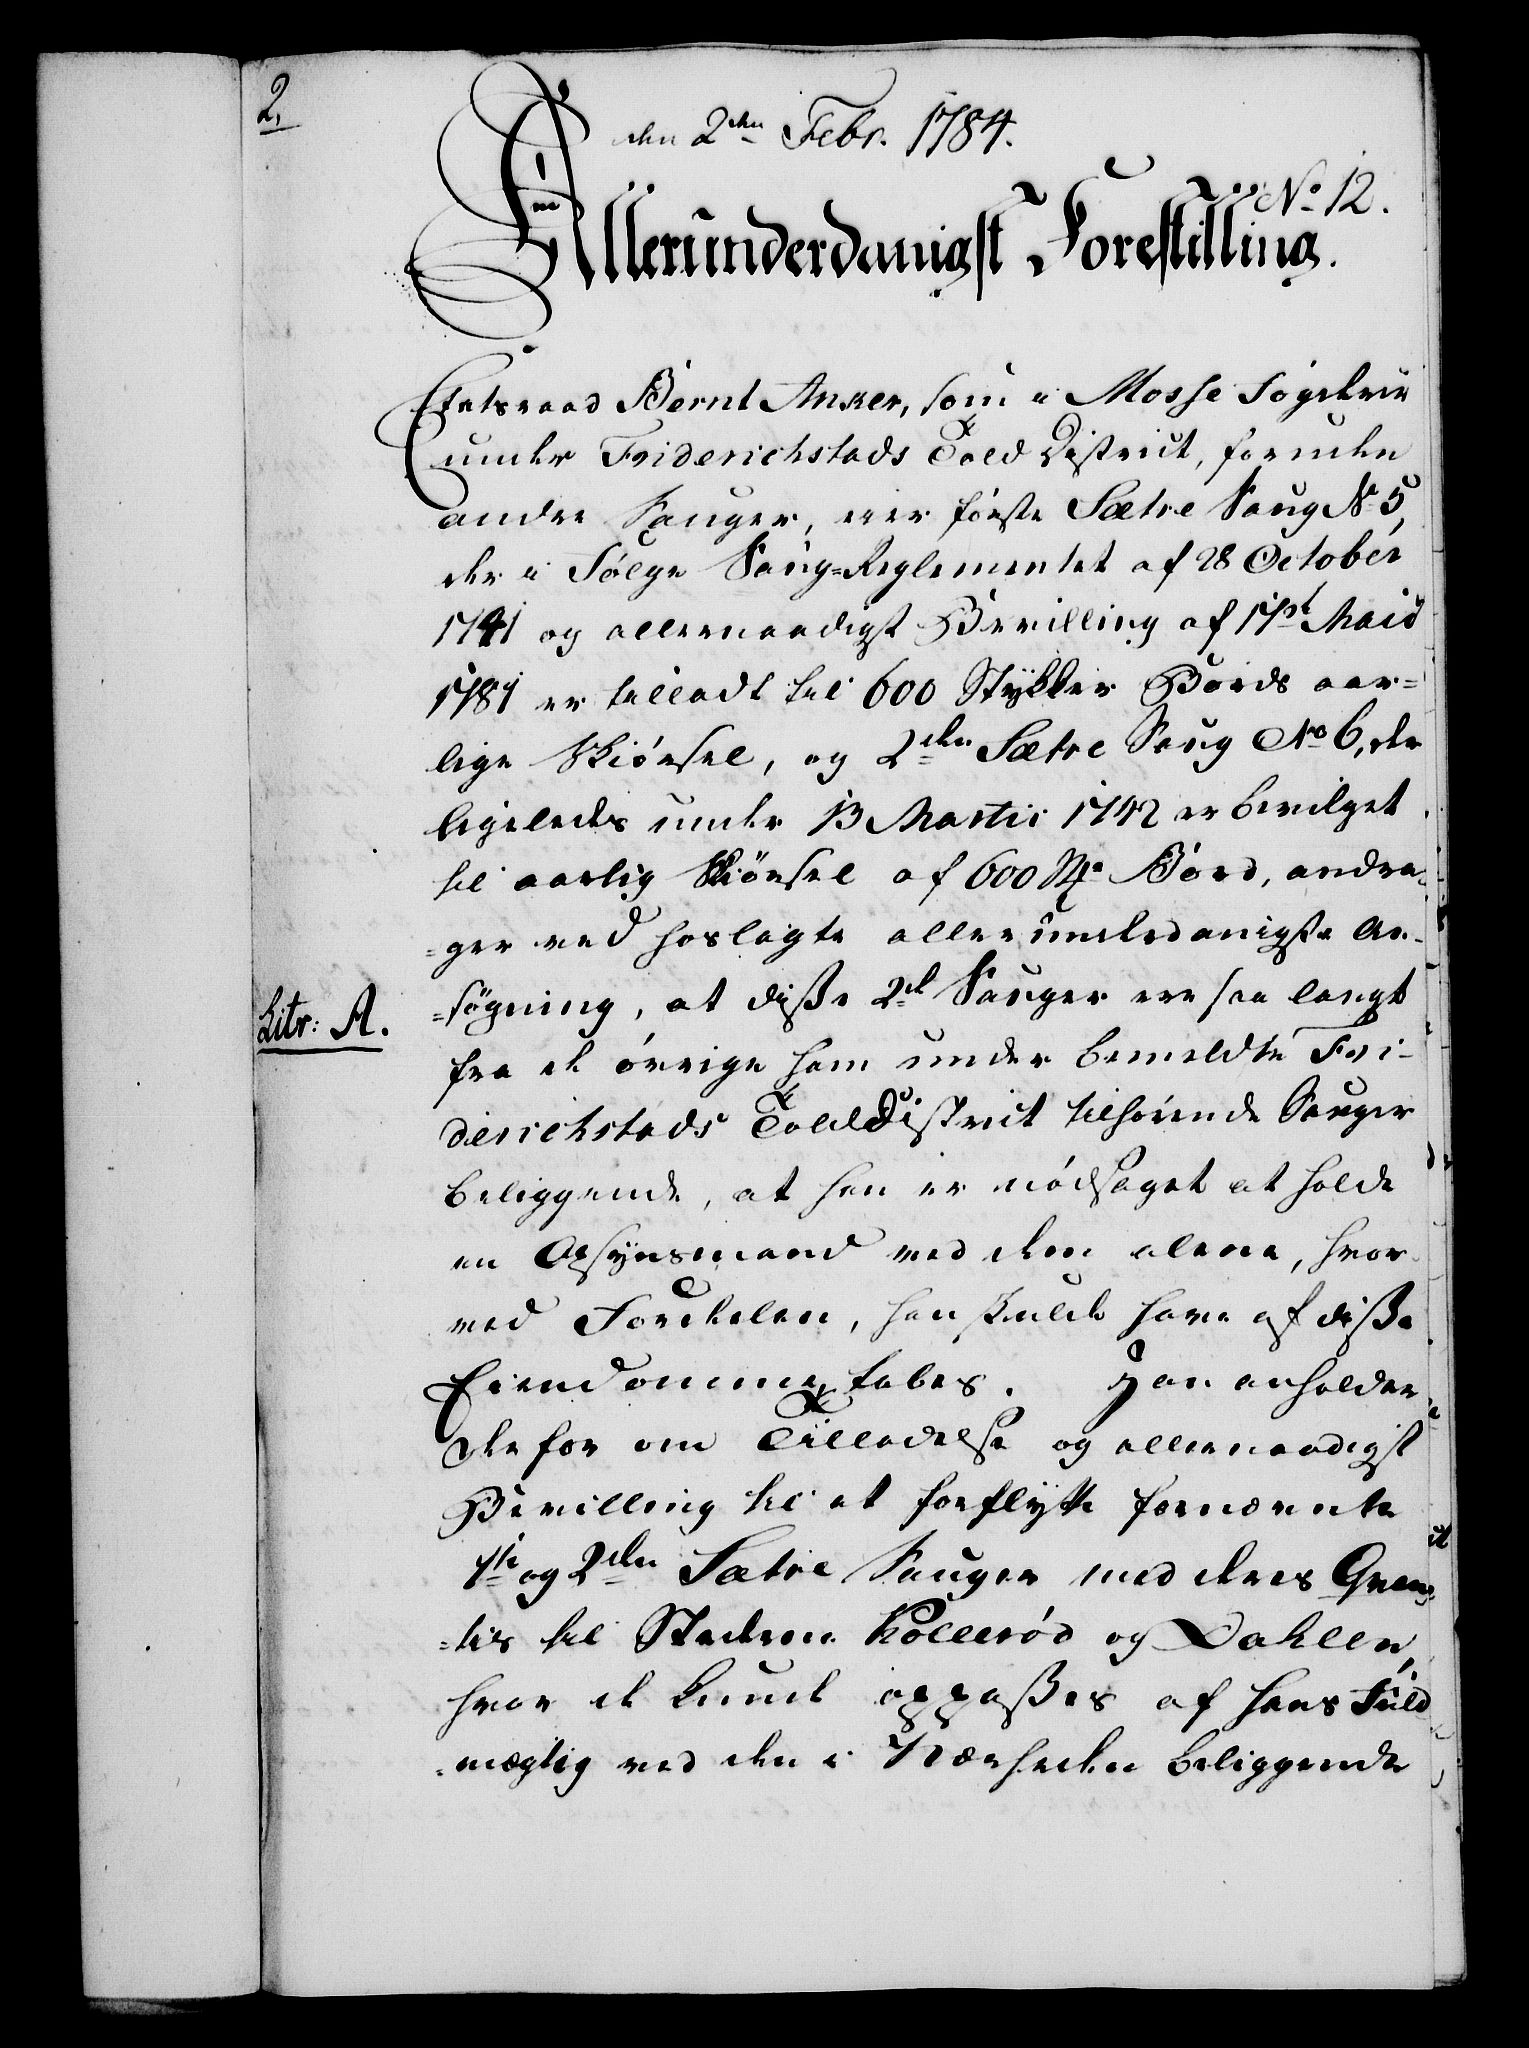 2.
den 2den Febr. 1784.
No 12.
Allerunderdanigst Forestilling.
Etatsraad Bernt Anker, som i Mosse Fogderie
under Friderichstads Told District, foruden
andre Sauger, eier første Sætre Saug No 5,
der i Følge Saug-Reglementet af 28 October
1741 og allernaadigst Bevilling af 17de Maii
1781 er tilladt til 600 Stykker Bords aar=
lige Skiørsel, og 2den Sætre Saug No 6, der
ligeledes under 13 Martii 1742 er bevilget
til aarlig Skiørsel af 600 St. Bord, andra-
=ger ved hoslagte allerunderdanigste An-
=søgning, at disse 2de Sauger ere saa langt
Litr: A.
fra de øvrige ham under bemeldte Fri-
derichstads Told District tilhørende Sauger
beliggende, at han er nødsaget at holde
en Opsynsmand ved dem alene, hvor-
ved Fordelen, han skulde have af disse
Eiendomme, tabes. Han anholder
derfor om Tilladelse og allernaadigst
Bevilling til at forflytte fornævnte
1te og 2den Sætre Sauger med deres Qvan-
=tis til Stederne Kollerød og Dahlen,
hvor de kunde oppasses af hans Fuld
=mægtig ved den i Nærheden beliggende